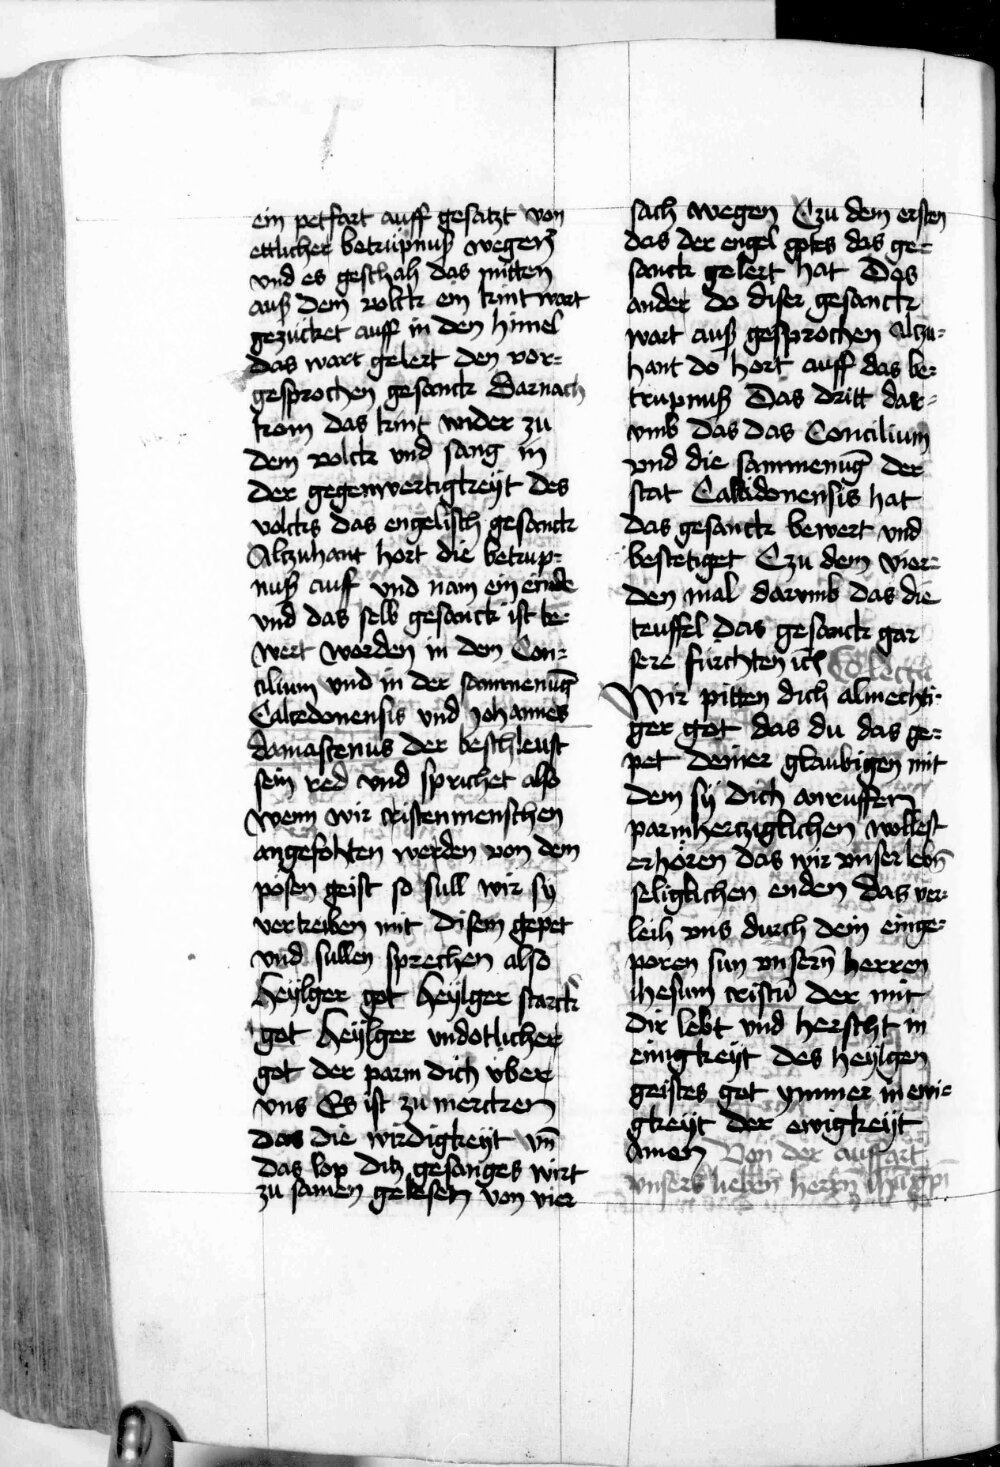 ein petfart auff gesatzt von
ettlicher betrüpnuß wegen
vnd es geschah das mitten
auß dem volck ein kint wart
gezücket auff in den himel
das wart gelert den vor-
gesprochen gesanck Darnach
kom das kint wider zu
dem volck vnd sang in
der gegenwertigkeyt des
volcks das engelisch gesanck
Alczuhant hort die betrup-
nuß auff vnd nam ein ende
vnd das selb gesanck ist be-
wert worden in dem Con-
cilium vnd in der sammenug̅
Calcedonensis vnd Johannes
damascenus der beschleust
sein red vnd sprichet also
Wenn wir cristenmenschen
angefohten werden von dem
posen geist so sull wir sy
vertreiben mit disem gepet
vnd sullen sprechen also
Heylger got Heylger starck
got Heylger vndotlicher
got der parm dich vber
vns Es ist zu mercken
das die wirdigkeyt vn̅
das lop ditz gesanges wirt
zu samen gelesen von vier
sach wegen Czu dem ersten
das der engel gotes das ge-
sanck gelert hat Das
ander do diser gesanck
wart auß gesprochen Alczu-
hant do hort auff das be-
trupnuß Das dritt dar-
vmb das das Concilium
vnd die sammenug̅ der
stat Calcidonensis hat
das gesanck bewert vnd
bestetiget Czu dem vier-
den mal darvmb das die
teuffel das gesanck gar
sere fürchten Collecta
Wir pitten dich almechti-
ger got das du das ge-
pet deiner glaubigen mit
dem sy dich anruffen
parmhercziglichen wollest
erhören das wir vnser lebn̅
seligklichen enden das ver-
leih vns durch dein einge-
poren sun vnsern̅ herren
ihesum cristu̅ der mit
dir lebt vnd herscht in
einigkeyt des heylgen
geistes got ymmer in ewi-
gkeyt der ewigkeyt
Amen Von der auffart
vnsers lieben̅ herrn̅ ihu̅ xpi